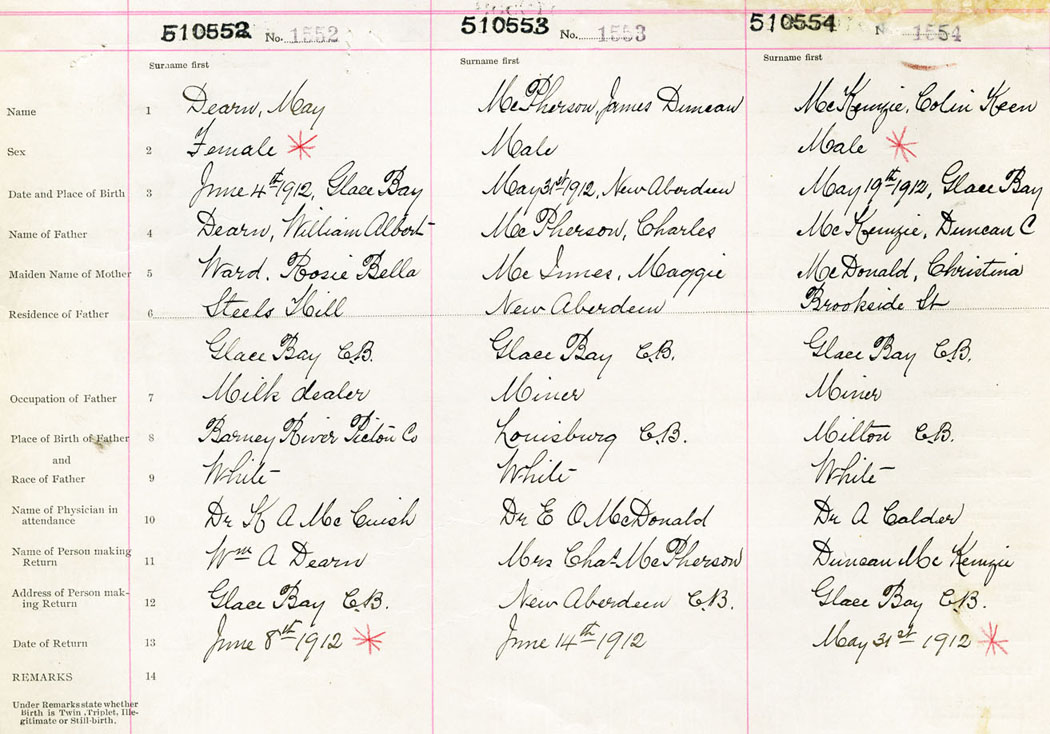 510552 No. 1552 510553 No. 1553 510554 No. 1554
Surname first Surname first Surname first
Name 1 Dearn, May McPherson, James Duncan McKenzie, Colin Keen
Sex 2 Female Male Male
Date and Place of Birth 3 June 4th 1912, Glace Bay May 31st 1912, New Aberdeen May 19th 1912, Glace Bay
Name of Father 4 Dearn, William Albert McPherson, Charles McKenzie, Duncan C
Maiden Name of Mother 5 Ward, Rosie Bella McInnes, Maggie McDonald, Christina
Residence of Father 6 Steels Hill New Aberdeen Brookside St
Glace Bay C.B. Glace Bay C.B. Glace Bay C.B.
Occupation of Father 7 Milk dealer Miner Miner
Place of Birth of Father 8 Barney River Picton Co Louisburg C.B. Milton C.B.
and
Race of Father 9 White White White
Name of Physician in
attendance 10 Dr K A McCuish Dr E O McDonald Dr A Calder
Name of Person making
Return 11 Wm A Dearn Mrs Chas McPherson Duncan McKenzie
Address of Person mak-
ing Return 12 Glace Bay C.B. New Aberdeen C.B. Glace Bay C.B.
Date of Return 13 June 8th 1912 June 14th 1912 May 31st 1912
REMARKS 14
Under Remarks state whether
Birth is Twin, Triplet, Ille-
gitimate or Still-birth.